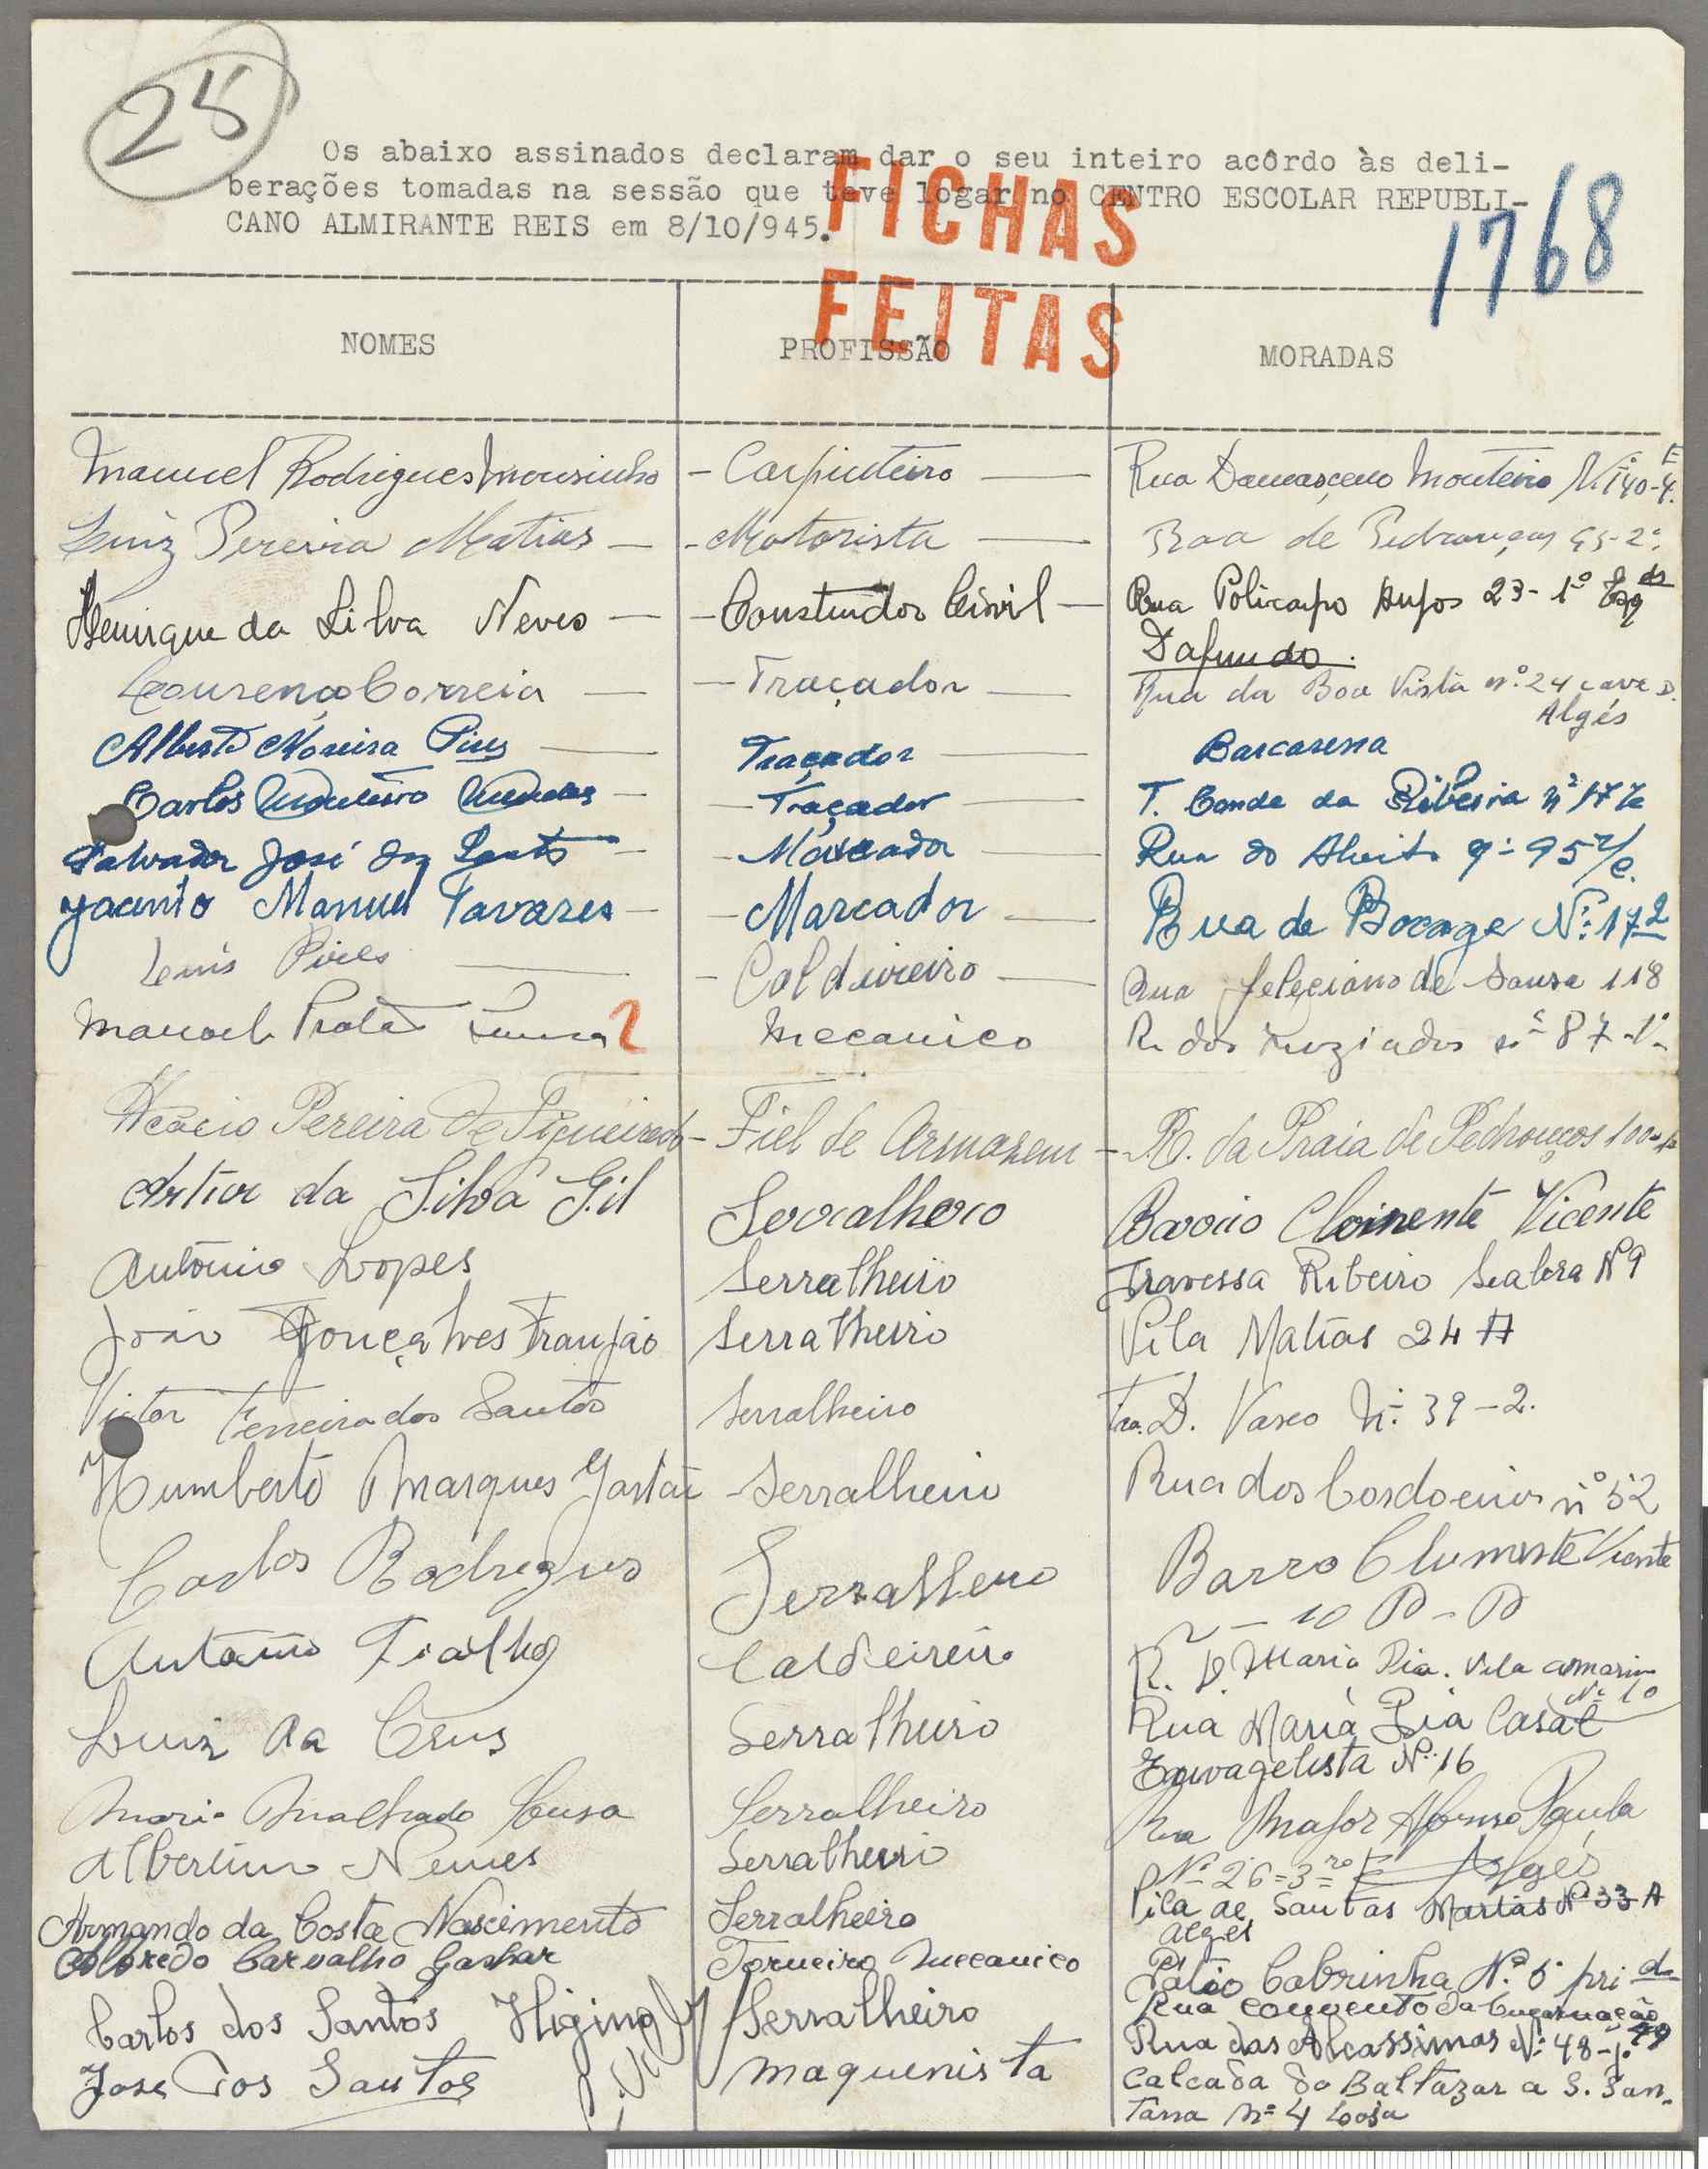 25
Os abaixo assinados declaram dar o seu inteiro acôrdo às deli-
berações tomadas na sessão que teve logar no CENTRO ESCOLAR REPUBLI-
CANO ALMIRANTE REIS em 8/10/945.
FICHAS
FEITAS
1768
NOMES PROFISSÃO MORADAS
Manuel Rodrigues Mousinho - Carpinteiro - Rua Damasceno Monteiro N.º 140-4.º E
Luiz Pereira Matias - Motorista - Rua de Pedrouços 95-2º
Henrique da Silva Neves - Construtor Civil - Rua Policarpo Anjos 23-1º Esq
Dafundo.
Lourenço Correia - Traçador - Rua da Boa Vista nº 24 cave D.
Algés
Alberto Moreira Pires - Traçador - Barcarena
Carlos Monteiro - Traçador - T. Conde da Ribeira nº 17
Salvador José dos Santos - Marcador - Rua do Alvito 95 r/c.
Jacinto Manuel Tavares - Marcador - Rua de Bocage Nº 17 2
Luis Pires - Caldeireiro - Rua Feleciano de Sousa 118
Manoel Prata 2 Mecanico R. dos nº 87-1º
Acácio Pereira de Figueiredo - Fiel de Armazem - R. da Praia de Pedrouços 100-1º
Artur da Silva Gil Serralheiro Bairro Clemente Vicente
António Lopes Serralheiro Travessa Ribeiro Seabra Nº 9
João Gonçalves Franjão Serralheiro Vila Matias 24 A
Victor Ferreira dos Santos Serralheiro Tra. D. Vasco Nº 39-2.
Humberto Marques Gastão - Serralheiro Rua dos Cordoeiros nº 52
Carlos Rodrigues Serralheiro Barro Clumente Vicente
10 P-D
António Fialho Caldeireiro R. D. Maria Pia. Vila amarim
Nº 10
Luiz da Crus Serralheiro Rua Maria Pia Casal
Envagelista Nº 16
Mario Malhado Serralheiro Rua Major Afonso Paula
Nº 26-3º E Algés
Albertino Nunes Serralheiro
Armando da Costa Nascimento Serralheiro Vila de Santas Martas Nº 33-A
Algés
Alfredo Carvalho Gaspar Torneiro Meccanico Patio Cabrinha Nº 5 pri
Rua convento da Encarnação
Carlos dos Santos Higino Serralheiro Rua das Alcassimas Nº 48-1º
José Dos Santos maquenista Calcada do Baltazar a S. San.
Tana nº 4 Loja